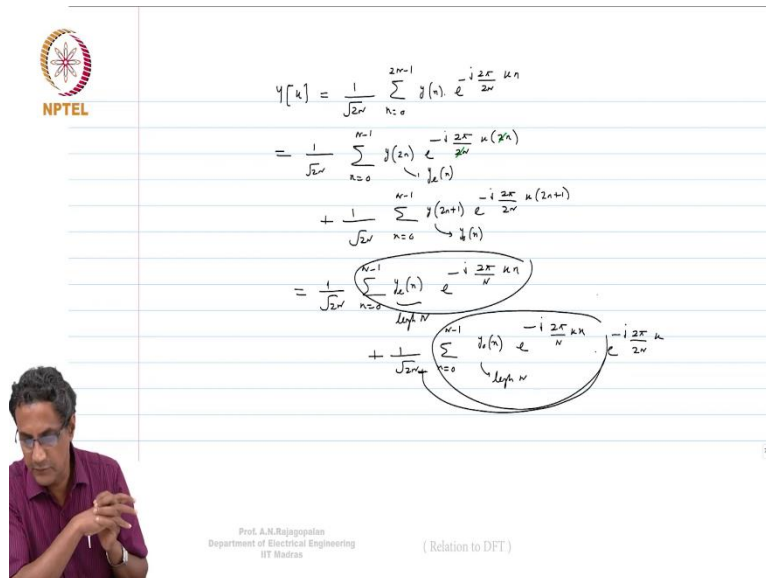 NPTEL
Y[k] = 1/√2N ∑_{n=0}^{2N-1} y(n). e^{-j 2π/2N kn}
= 1/√2N ∑_{n=0}^{N-1} y(2n) e^{-j 2π/2N k(2n)}
↘ y_e(n)
+ 1/√2N ∑_{n=0}^{N-1} y(2n+1) e^{-j 2π/2N k(2n+1)}
↘ y_o(n)
= 1/√2N ∑_{n=0}^{N-1} y_e(n) e^{-j 2π/N kn}
length N
+ 1/√2N ∑_{n=0}^{N-1} y_o(n) e^{-j 2π/N kn} . e^{-j 2π/2N k}
↘ length N
Prof. A.N.Rajagopalan
Department of Electrical Engineering
IIT Madras
( Relation to DFT )